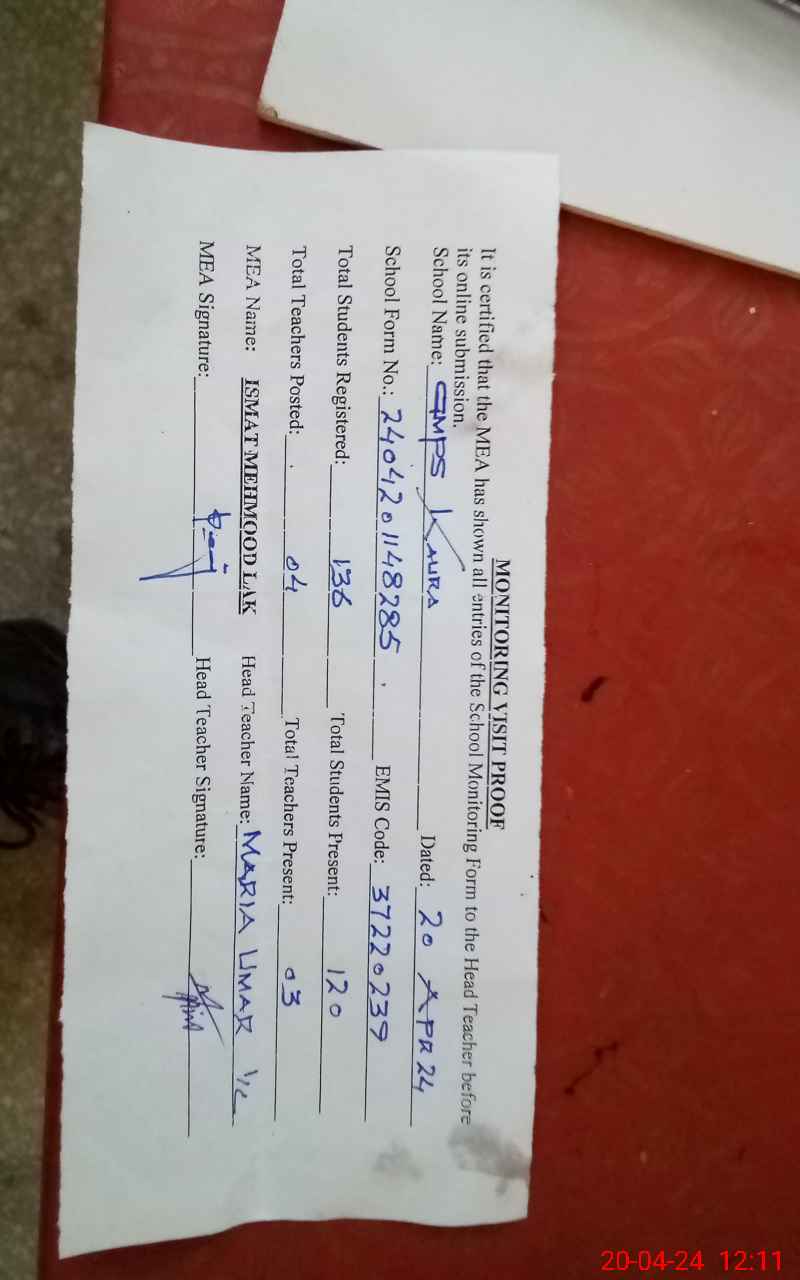 MONITORING VISIT PROOF
It is certified that the MEA has shown all entries of the School Monitoring Form to the Head Teacher before
its online submission.
School Name: GMPS KAURA Dated: 20 APR 24
School Form No.: 2404201148285 EMIS Code: 37220239
Total Students Registered: 136 Total Students Present: 120
Total Teachers Posted: 04 Total Teachers Present: 03
MEA Name: ISMAT MEHMOOD LAK Head Teacher Name: MARIA UMAR I/C
MEA Signature: Head Teacher Signature:
20-04-24 12:11